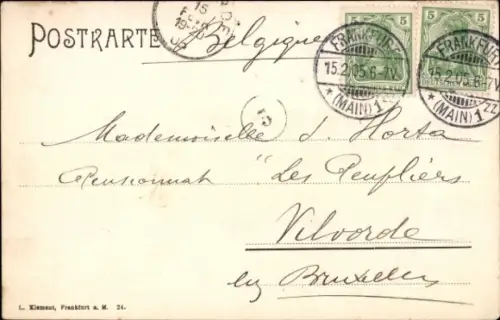 POSTKARTE
Belgique
5 5
5 5
FRANKFURT
15.2.05.6-7V.
* (MAIN) 1 zz
FRANKFURT
15.2.05.6-7V.
* (MAIN) 1 zz
15
Mademoiselle J. Horta
Pensionnat "Les Peupliers
Vilvorde
bij Bruxelles
L. Klement, Frankfurt a. M. 24.